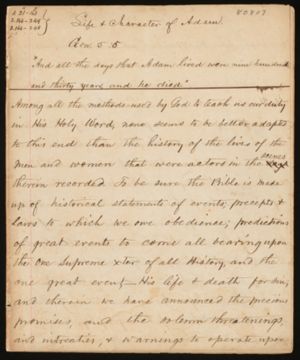 Life & Character of Adam.
Gen 5.5
"And all the days that Adam lived were nine hundred
and thirty years and he died"
Among all the methods used by God to teach us our duty
in His Holy Word, none seems to be better adapted
to this end than the history of the lives of the
men and women that were actors in the scenes
therein recorded. To be sure the Bible is made
up of historical statements of events, precepts &
laws to which we owe obedience; predictions
of great events to come all bearing upon
the One Supreme actor of all History, and the
one great event,— His life & death for sin;
and therein we have announced the precious
promises, and the solemn threatenings,
and intreaties, & warnings to operate upon